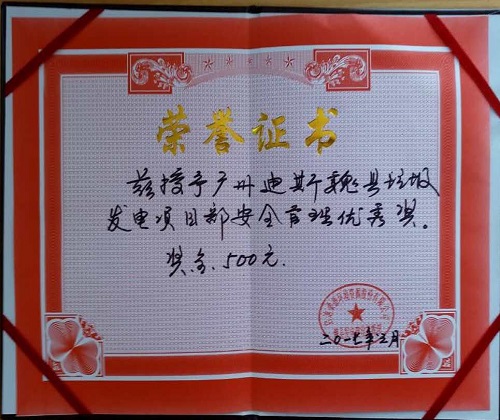 荣誉证书
兹授予广州迪斯魏县垃圾
发电项目部安全管理优秀奖。
奖金:500元.
二〇一七年三月